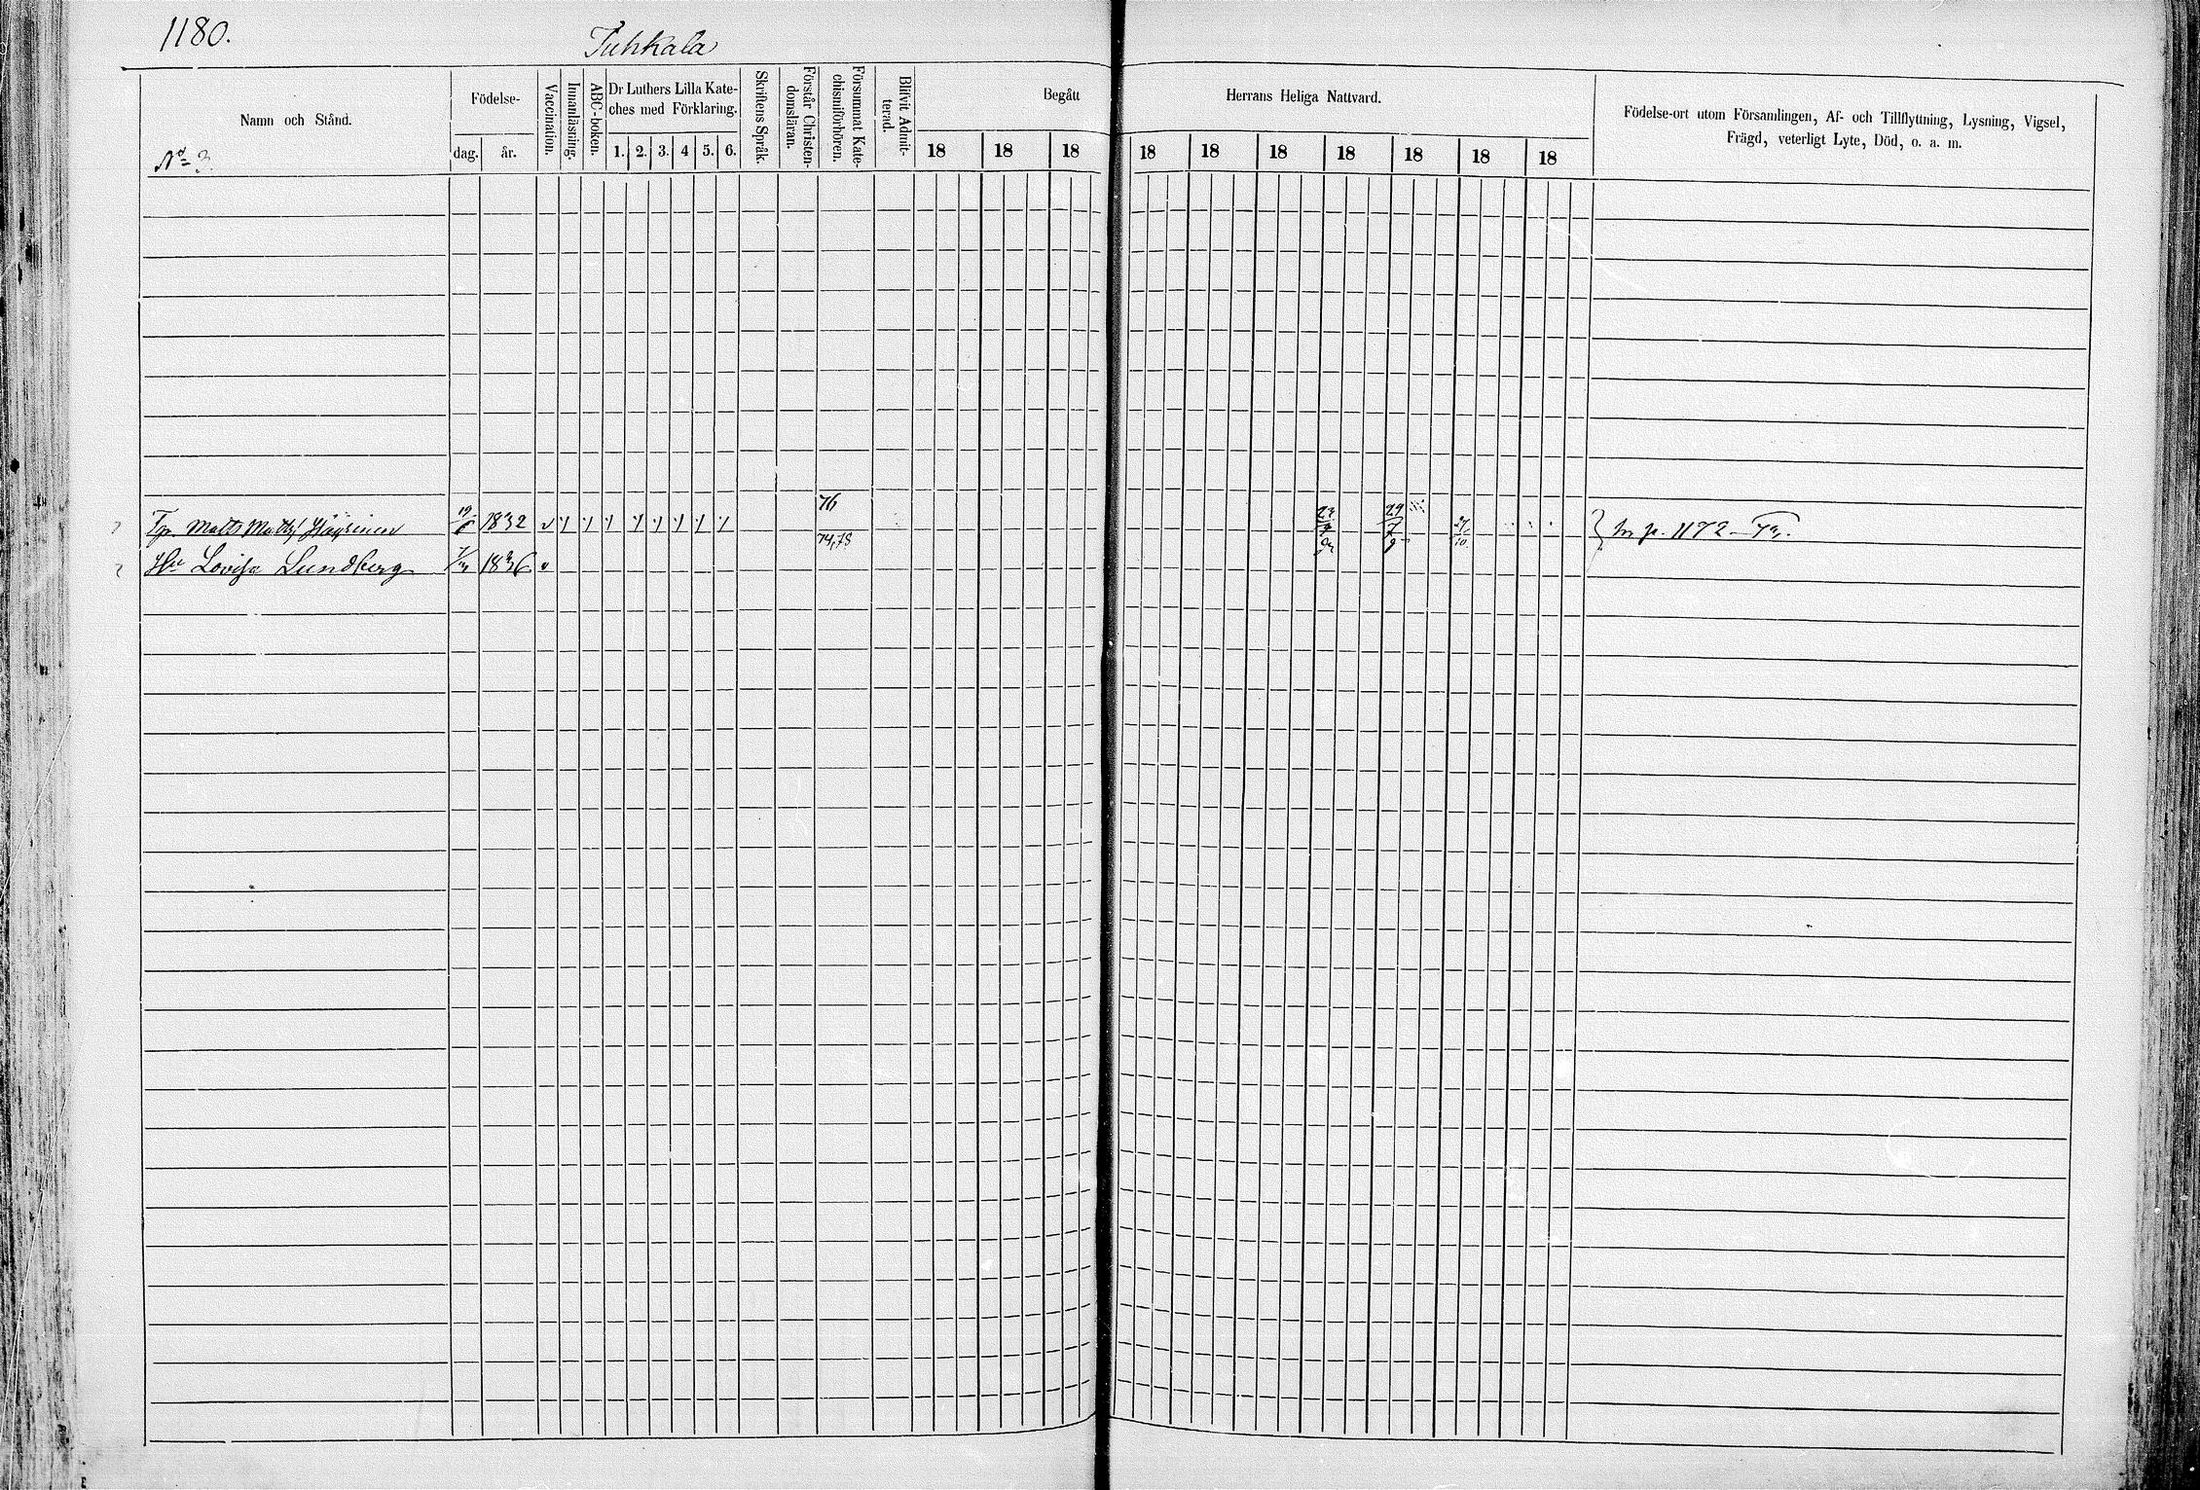 1180.
Tuhkala
Namn och Stånd.
Nº 3.
Födelse-
dag. år.
Vaccination.
Innanläsning.
ABC-boken.
Dr Luthers Lilla Kate-
ches med Förklaring.
1. 2. 3. 4 5. 6.
Skriftens Språk.
Förstår Christen-
domsläran.
Försummat Kate-
chismiförhören.
Blifvit Admit-
terad.
Begått Herrans Heliga Nattvard.
18 18 18 18 18 18 18 18 18 18
Födelse-ort utom Församlingen, Af- och Tillflyttning, Lysning, Vigsel,
Frägd, veterligt Lyte, Död, o. a. m.
76
Matts Matts Häyrinen 19/6 1832 74,75 23/9 29/7 p. 1172
Hu Lovisa Lundberg 1836